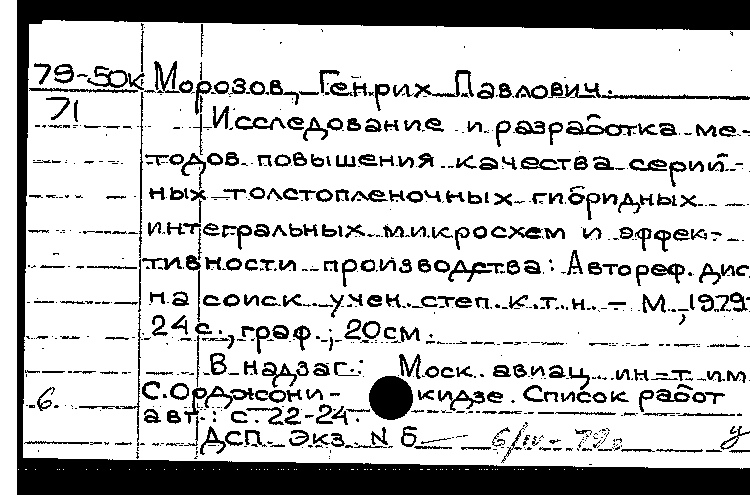 79-50к Морозов, Генрих Павлович.
71 Исследование и разработка ме-
тодов повышения качества серий-
ных толстопленочных гибридных
интегральных микросхем и эффек-
тивности производства: Автореф. дис
на соиск. учен. степ. к.т.н. - М., 1979.
24 с., граф.; 20см.
В надзаг.: Моск. авиац. ин-т им
6. С. Орджоникидзе. Список работ
авт.: с. 22-24.
ДСП. Экз. N 6 6/IV-79г у